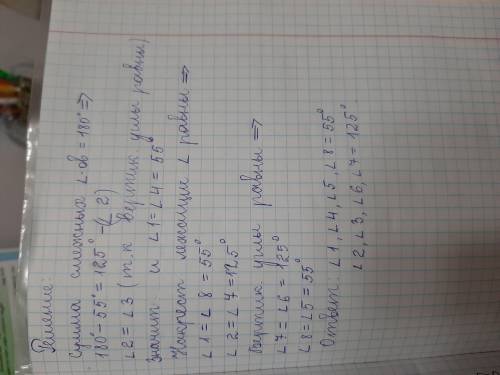 Решение:
Сумма смежных ∠-ов = 180° =>
180° - 55° = 125° - (∠2)
∠2 = ∠3 (т.к вертик углы равны)
Значит и ∠1 = ∠4 = 55°
Накрест лежащие ∠ равны =>
∠1 = ∠8 = 55°
∠2 = ∠7 = 125°
Вертик углы равны =>
∠7 = ∠6 = 125°
∠8 = ∠5 = 55°
Ответ ∠1, ∠4, ∠5, ∠8 = 55°
∠2, ∠3, ∠6, ∠7 = 125°.